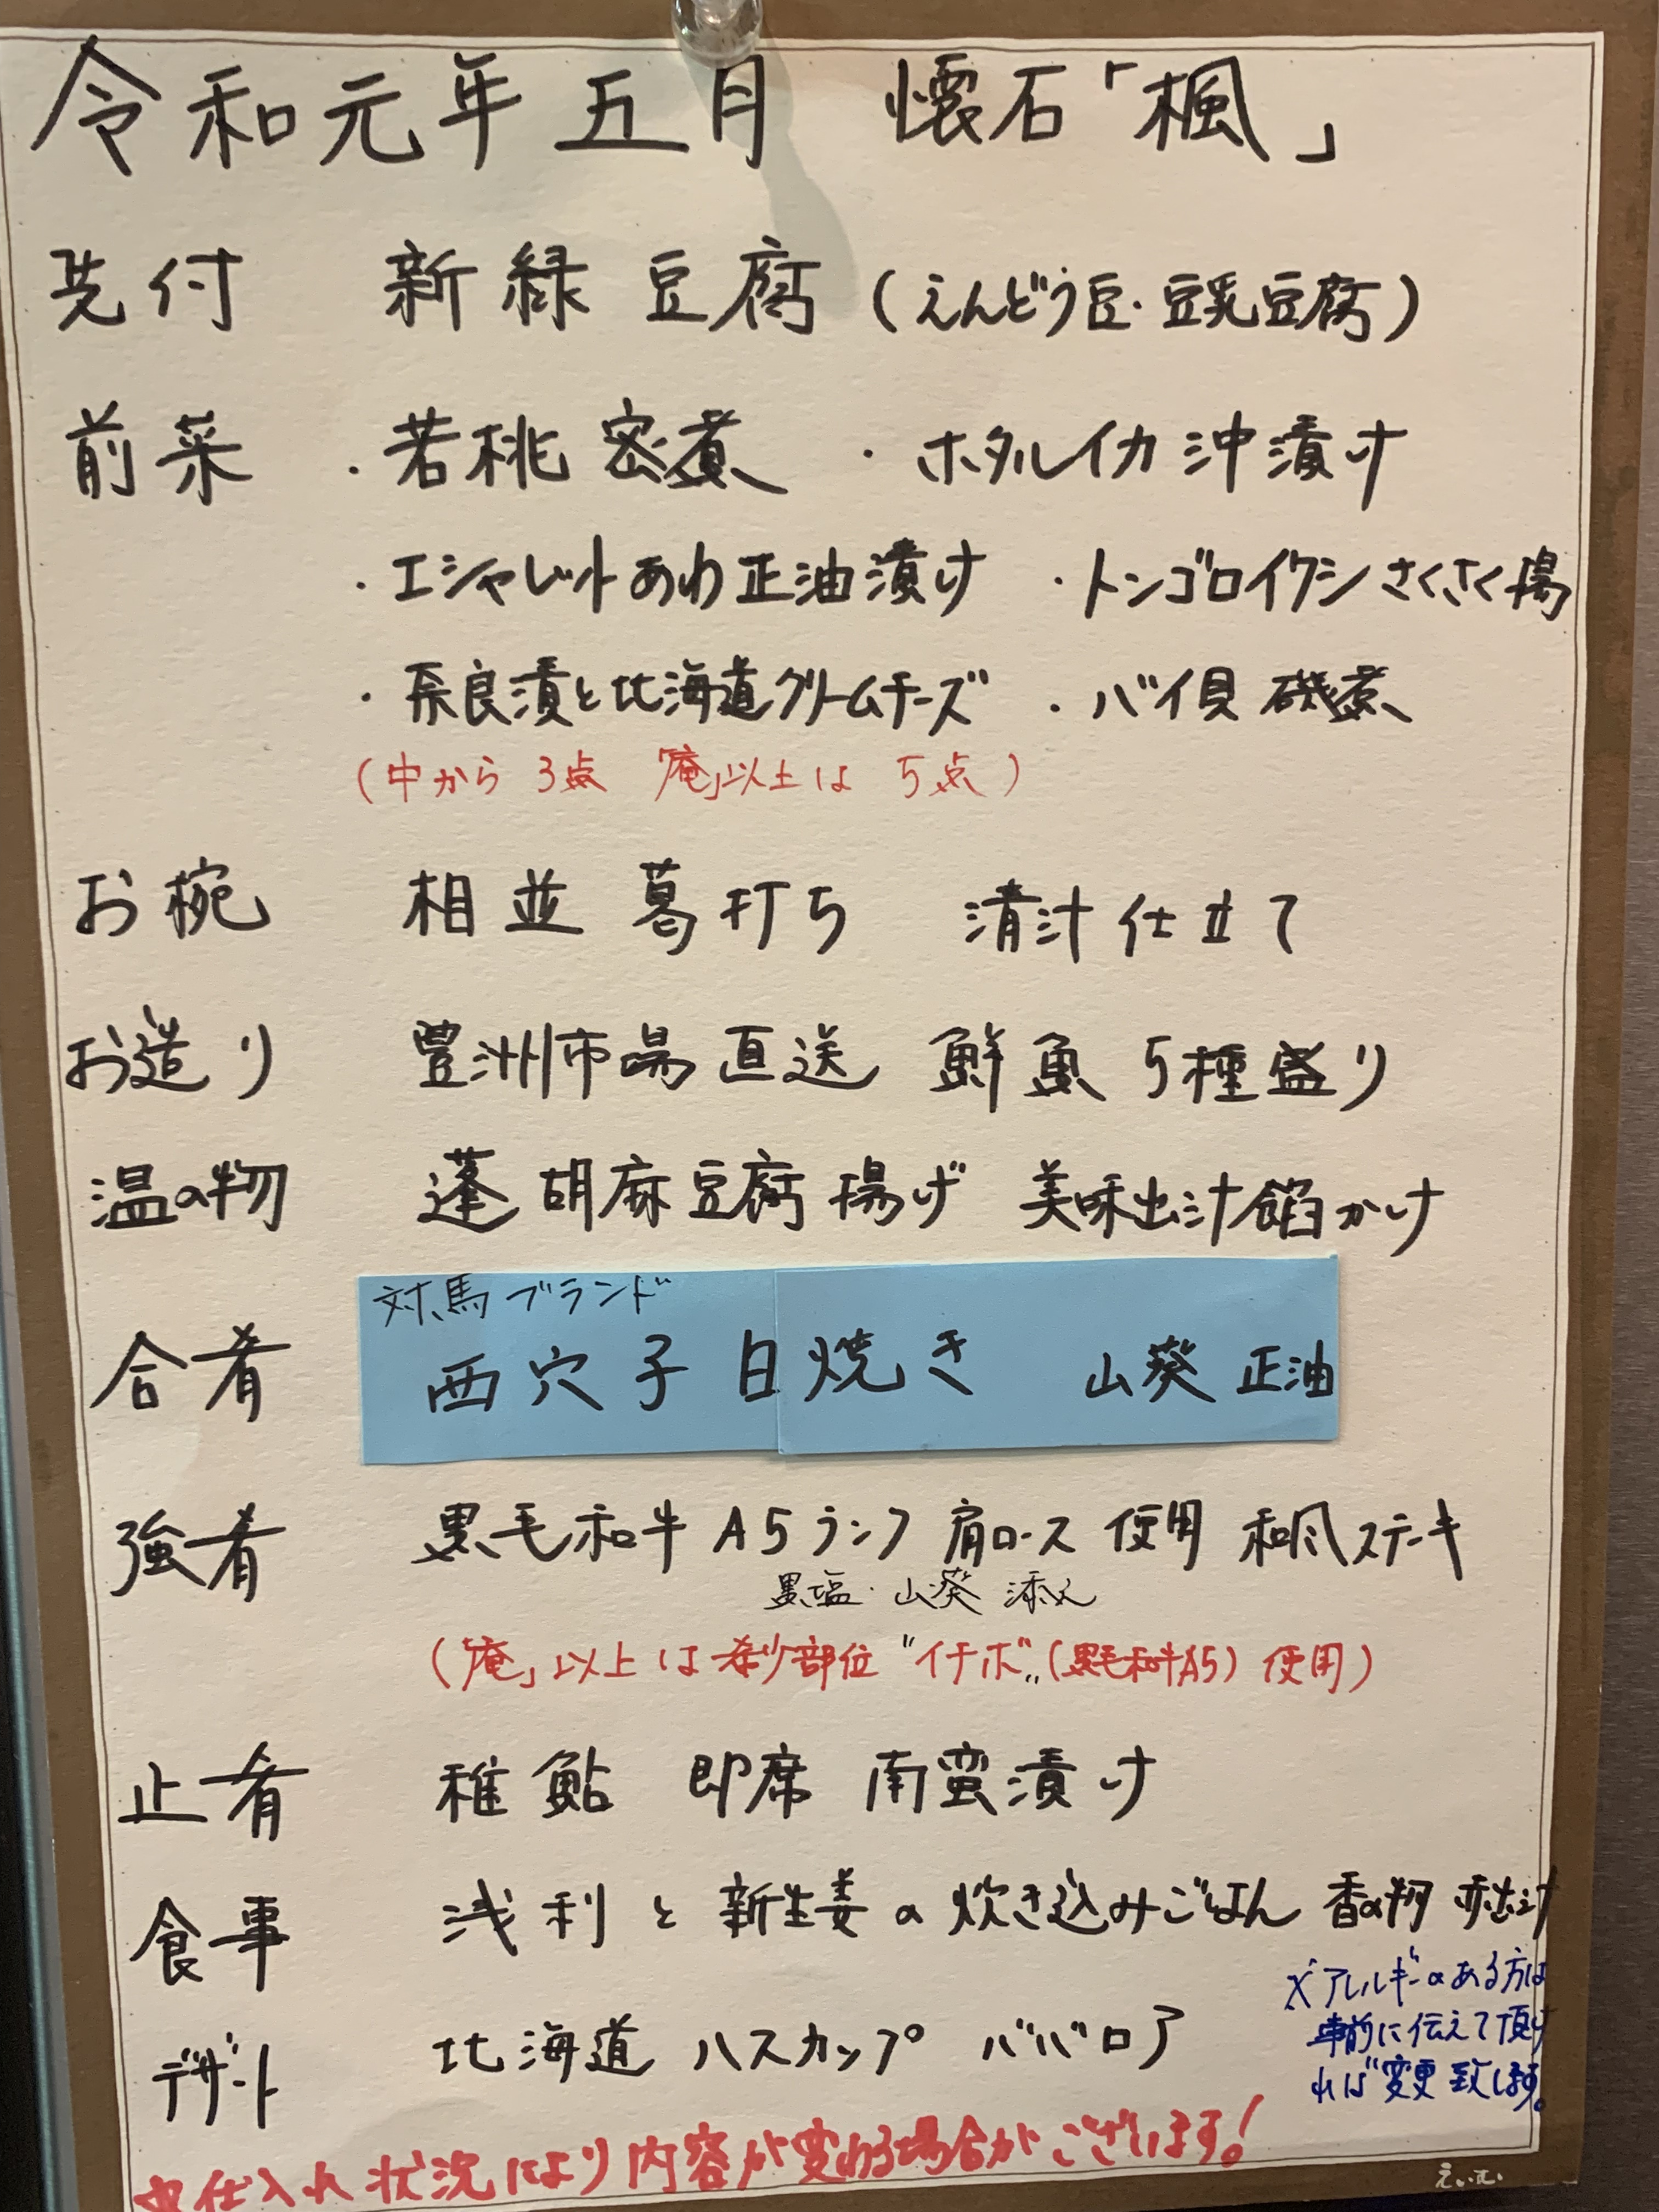 令和元年五月 懐石「楓」
先付 新緑豆腐(えんどう豆・豆乳豆腐)
前菜 ・若桃密煮 ・ホタルイカ沖漬け
・エシャレットあわ正油漬け ・トンゴロイワシさくさく揚
・奈良漬と北海道クリームチーズ ・バイ貝磯煮
(中から3点「庵」以上は5点)
お椀 相並葛打ち 清汁仕立て
お造り 豊洲市場直送 鮮魚5種盛り
温の物 蓬胡麻豆腐揚げ 美味出汁餡かけ
対馬ブランド
合肴 西穴子白焼き 山葵正油
強肴 黒毛和牛A5ランク肩ロース使用 和風ステーキ
黒塩・山葵添え
(「庵」以上は希少部位"イチボ"(黒毛和牛A5)使用)
止肴 稚鮎 即席 南蛮漬け
食事 浅利と新生姜の炊き込みごはん 香の物 赤出汁
デザート 北海道ハスカップ ババロア
※アレルギーのある方は
事前に伝えて頂け
れば変更致します。
※仕入れ状況により内容が変わる場合がございます!
えいむ